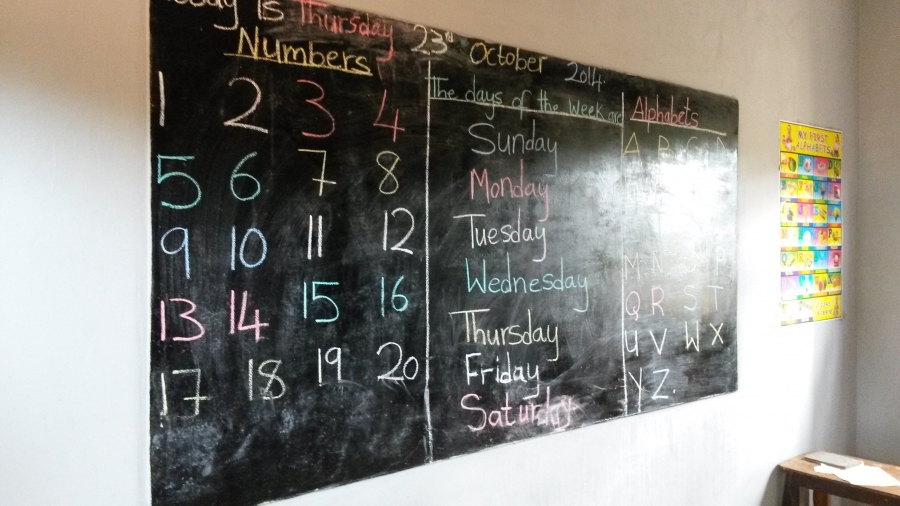 oday is Thursday 23rd October 2014.
Numbers
1 2 3 4
5 6 7 8
9 10 11 12
13 14 15 16
17 18 19 20
The days of the week are
Sunday
Monday
Tuesday
Wednesday
Thursday
Friday
Saturday
Alphabets
A B C D
M N O P
Q R S T
U V W X
Y Z.
MY FIRST
ALPHABETS